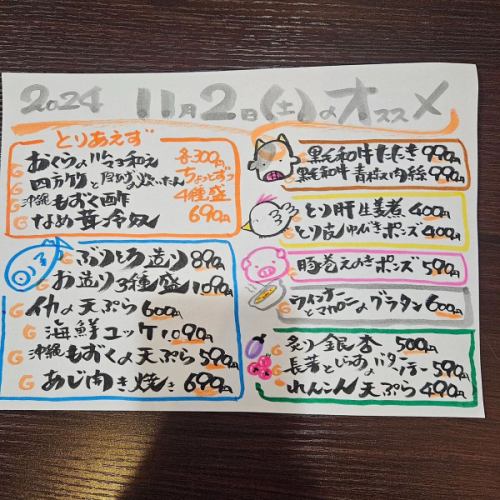 2024 11月2日(土)のオススメ
とりあえず
おくらの 和え
各300円
四方竹と の炊いたん
ちょっとずつ
沖縄もずく酢
4種盛
なめ茸冷奴
690円
ぶりとろ造り 890円
お造り3種盛 1,090円
イカの天ぷら 600円
海鮮ユッケ 1,090円
沖縄もずくの天ぷら 590円
あじ開き焼き 690円
黒毛和牛たたき 990円
黒毛和牛青椒肉絲 990円
とり肝生姜煮 400円
とり皮ゆびきポンズ 400円
豚巻えのきポンズ 590円
ウインナーとマカロニのグラタン 600円
炙り銀杏 500円
長芋としらすのバターソテー 590円
れんこん天ぷら 490円